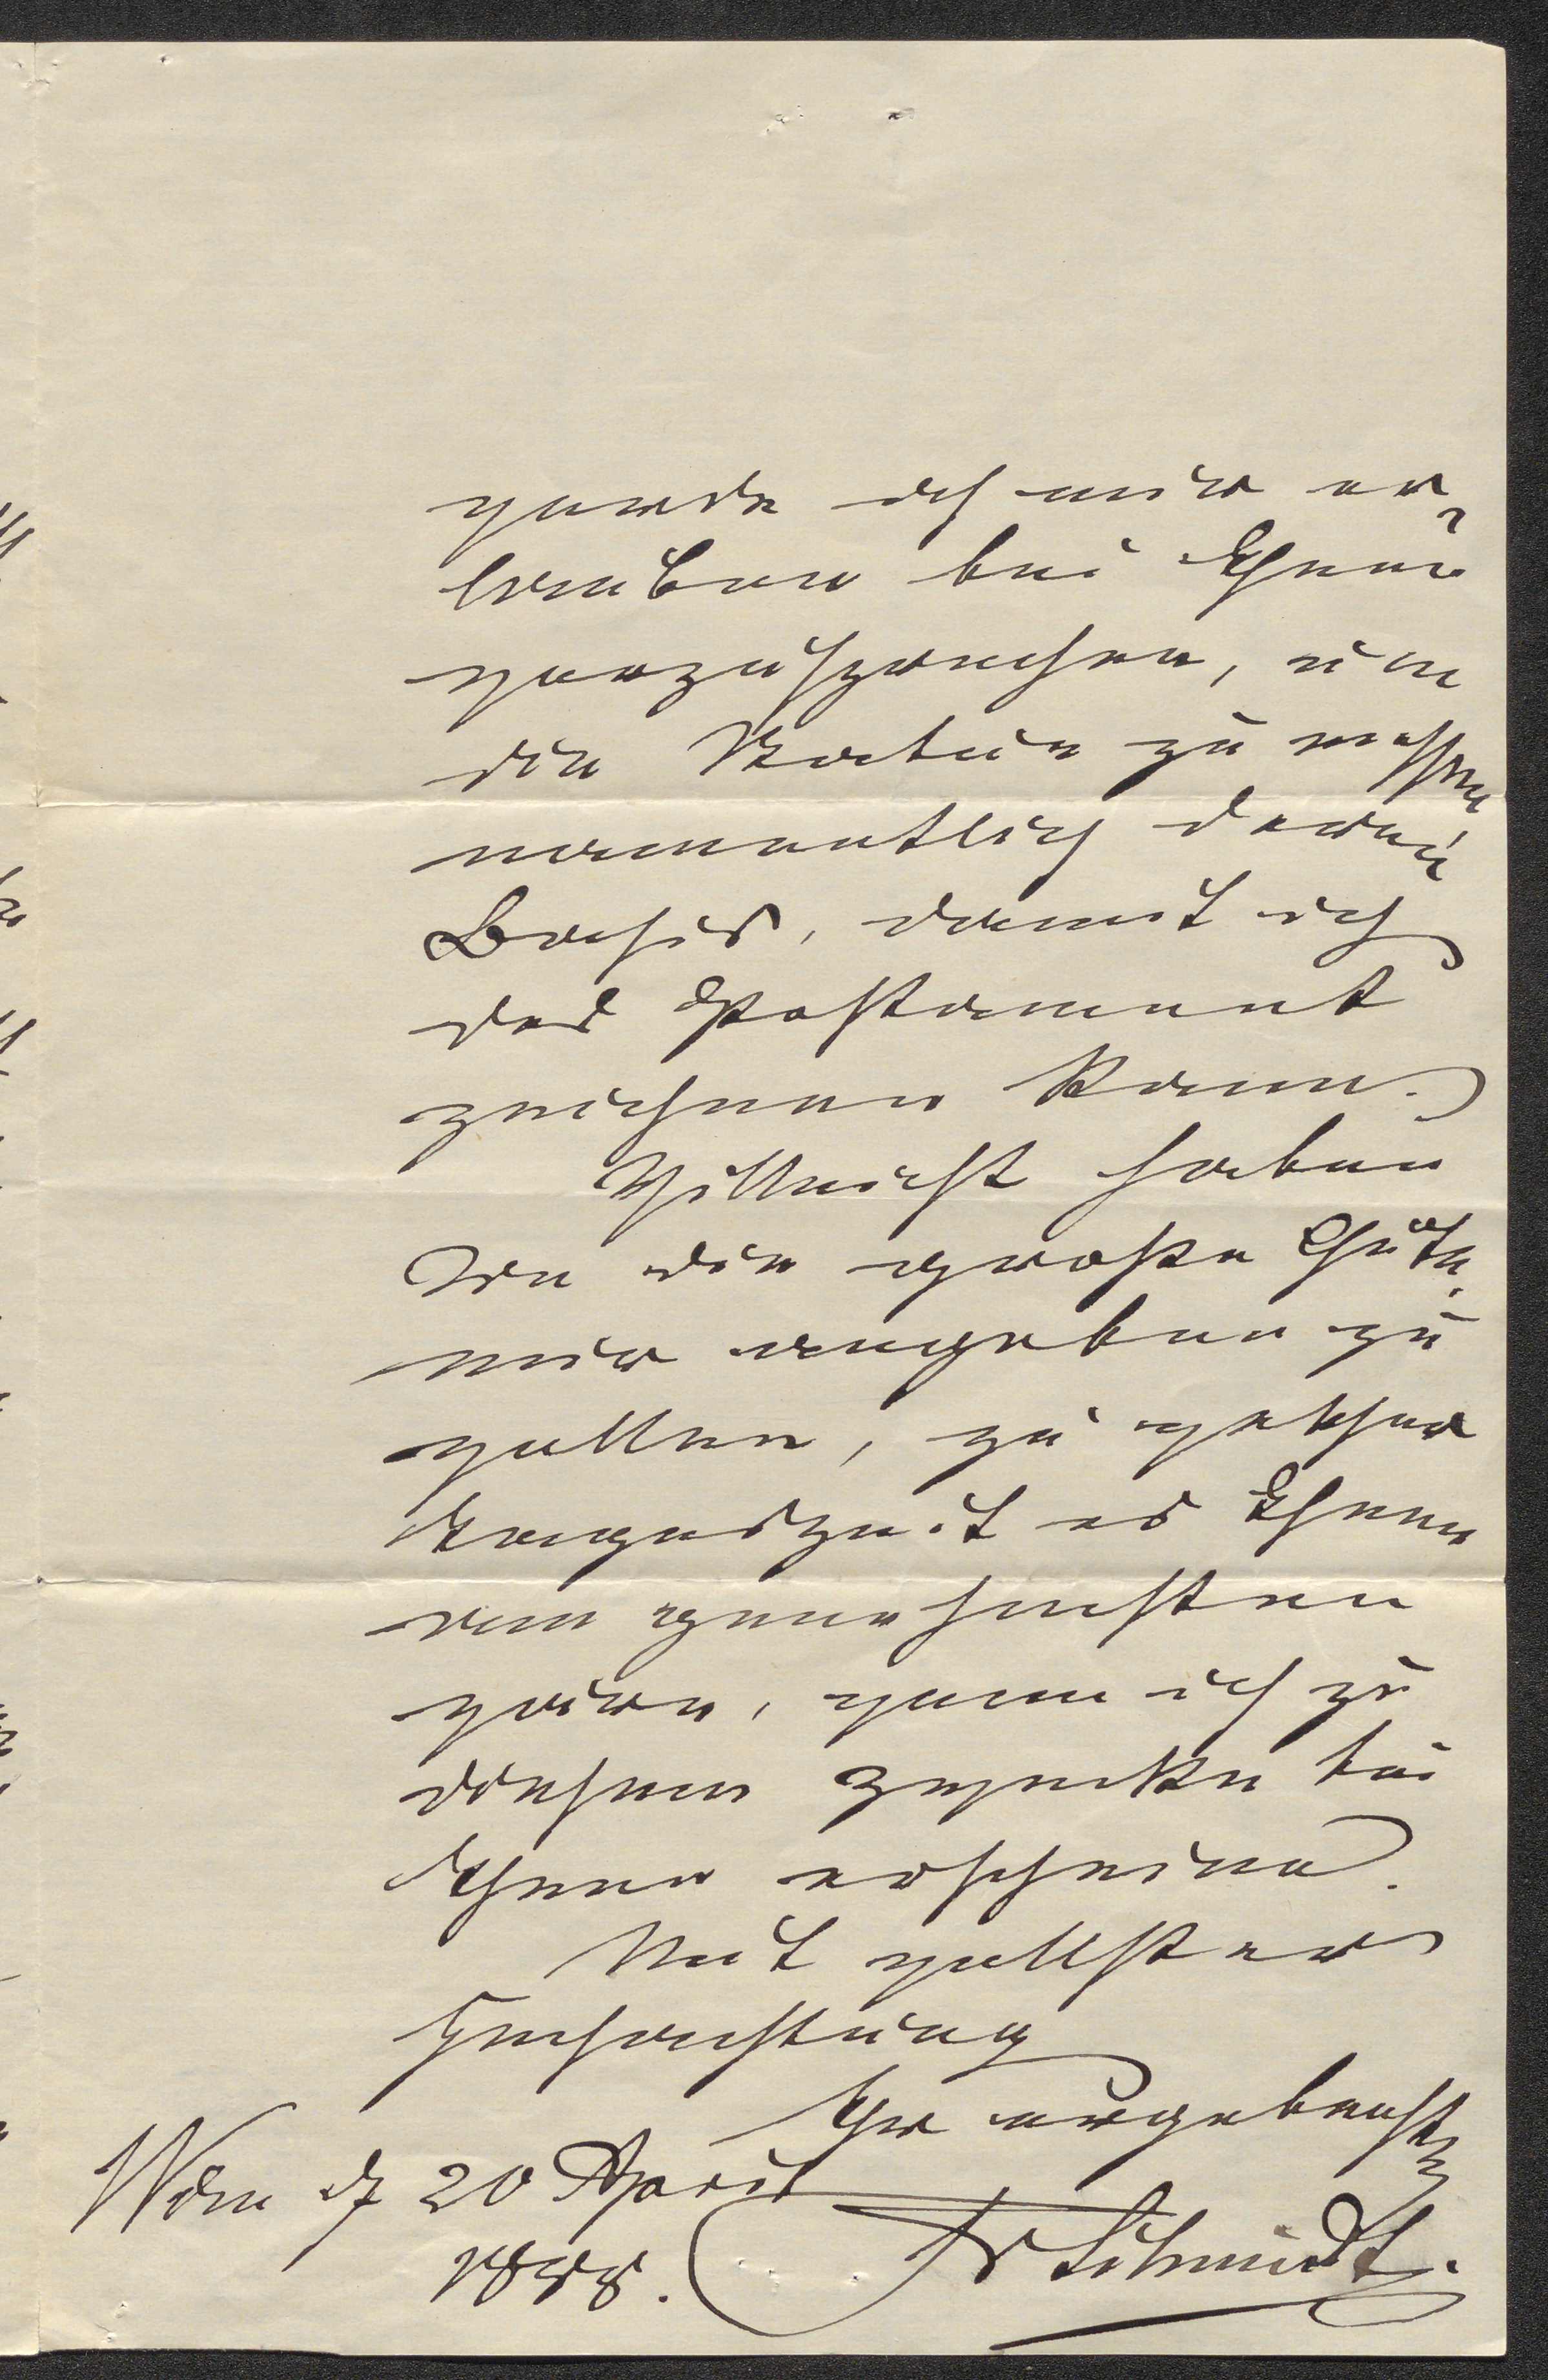 werde ich mir er-
lauben bei Ihnen
vorzusprechen, um
die Statue zu messen
namentlich deren
Basis, damit ich
das Postament
zeichnen kann.
Villeicht haben
Sie die große Güte,
mir angeben zu
wollen, zu welcher
Tageszeit es Ihnen
am genehmsten
wäre, wenn ich zu
diesem Zwecke bei
Ihnen erscheine.
Mit vollster
Hochachtung
Ihr ergebenster
Wien d 20 April
1888. Fr Schmidt.